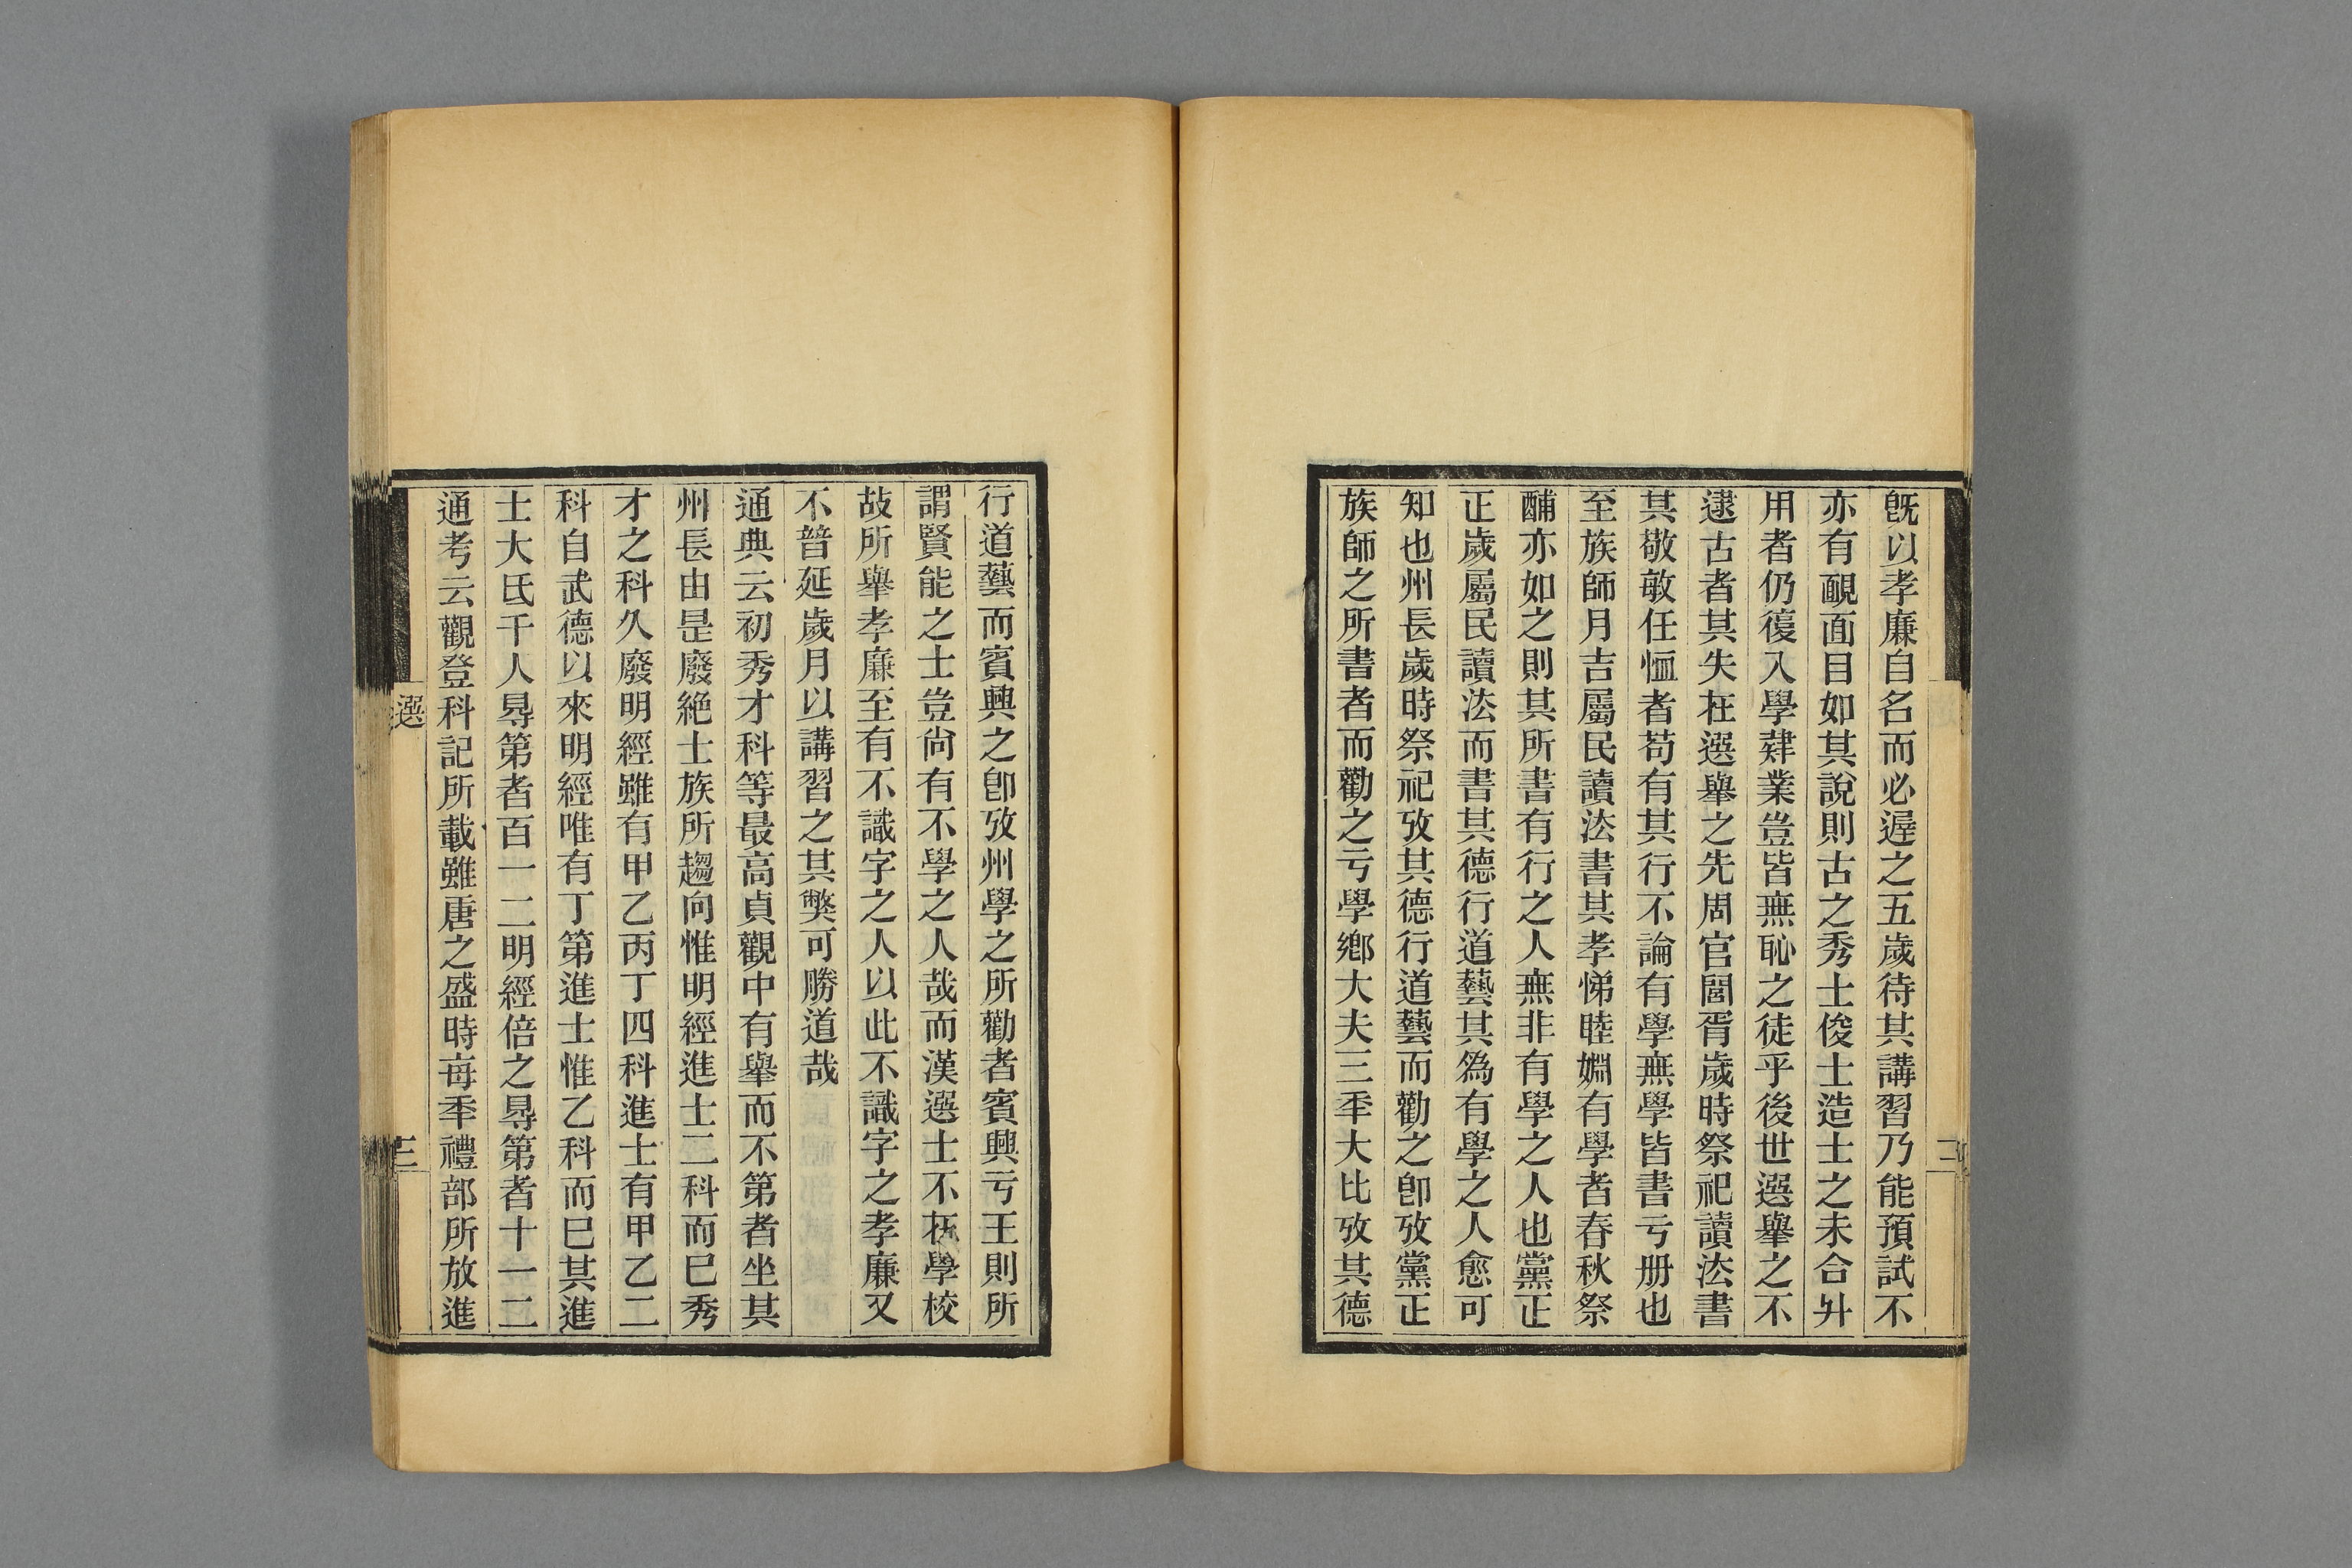 旣以孝廉自名而必遲之五歲待其講習乃能預試不
亦有靦面目如其說則古之秀士俊士造士之未合升
用者仍復入學肄業豈皆無恥之徒乎後世選舉之不
逮古者其失在選舉之先周官閭胥歲時祭祀讀法書
其敬敏任恤者苟有其行不論有學無學皆書亏册也
至族師月吉屬民讀法書其孝悌睦婣有學者春秋祭
酺亦如之則其所書有行之人無非有學之人也黨正
正歲屬民讀法而書其德行道藝其爲有學之人愈可
知也州長歲時祭祀攷其德行道藝而勸之卽攷黨正
族師之所書者而勸之亏學鄕大夫三秊大比攷其德
二
行道藝而賓興之卽攷州學之所勸者賓興亏王則所
謂賢能之士豈尙有不學之人哉而漢選士不在學校
故所舉孝廉至有不識字之人以此不識字之孝廉又
不暜延歲月以講習之其獘可勝道哉
通典云初秀才科等最高貞觀中有舉而不第者坐其
州長由是廢絶士族所趨向惟明經進士二科而巳秀
才之科久廢明經雖有甲乙丙丁四科進士有甲乙二
科自武德以來明經唯有丁第進士惟乙科而巳其進
士大氐千人㝵第者百一二明經倍之㝵第者十一二
通考云觀登科記所載雖唐之盛時每秊禮部所放進
選
三